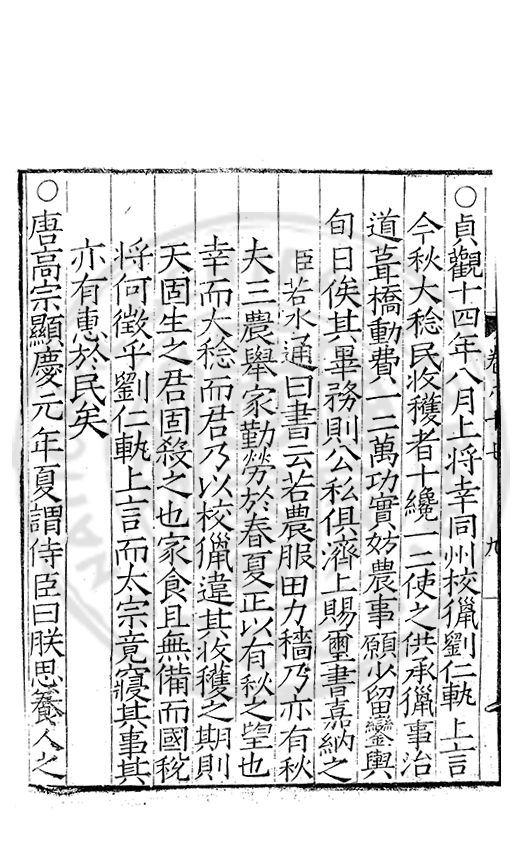 ○貞觀十四年八月上將幸同州校獵劉仁軌上言
今秋大稔民收穫者十纔一二使之供承獵事治
道葺橋動費一二萬功實妨農事願少留鑾輿
旬日俟其畢務則公私俱濟上賜璽書嘉納之
臣若水通曰書云若農服田力穡乃亦有秋
夫三農舉家勤勞於春夏正以有秋之望也
幸而大稔而君乃以校獵違其收穫之期則
天固生之君固殺之也家食且無備而國稅
將何徵乎劉仁軌上言而太宗竟寢其事其
亦有惠於民矣
○唐高宗顯慶元年夏謂侍臣曰朕思養人之